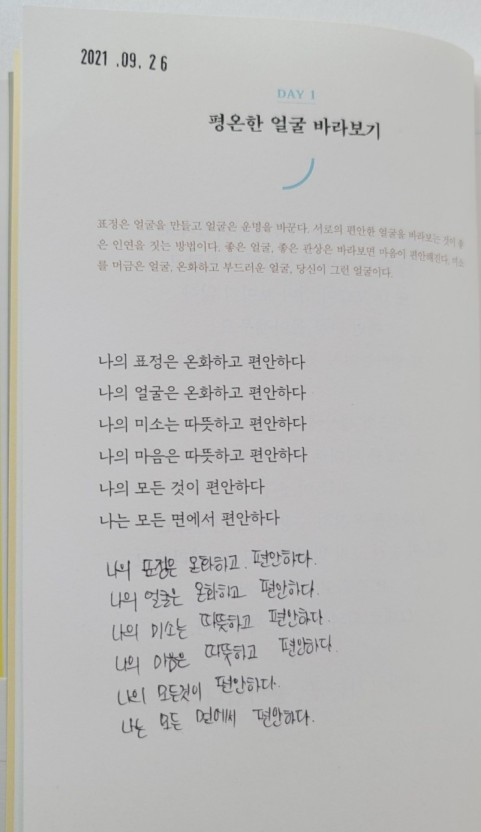 2021.09.26
DAY 1
평온한 얼굴 바라보기
표정은 얼굴을 만들고 얼굴은 운명을 바꾼다. 서로의 편안한 얼굴을 바라보는 것이 좋
은 인연을 짓는 방법이다. 좋은 얼굴, 좋은 관상은 바라보면 마음이 편안해진다. 미소
를 머금은 얼굴, 온화하고 부드러운 얼굴, 당신이 그런 얼굴이다.
나의 표정은 온화하고 편안하다
나의 얼굴은 온화하고 편안하다
나의 미소는 따뜻하고 편안하다
나의 마음은 따뜻하고 편안하다
나의 모든 것이 편안하다
나는 모든 면에서 편안하다
나의 표정은 온화하고. 편안하다.
나의 얼굴은 온화하고 편안하다.
나의 미소는 따뜻하고 편안하다.
나의 마음은 따뜻하고 편안하다.
나의 모든것이 편안하다.
나는 모든 면에서 편안하다.